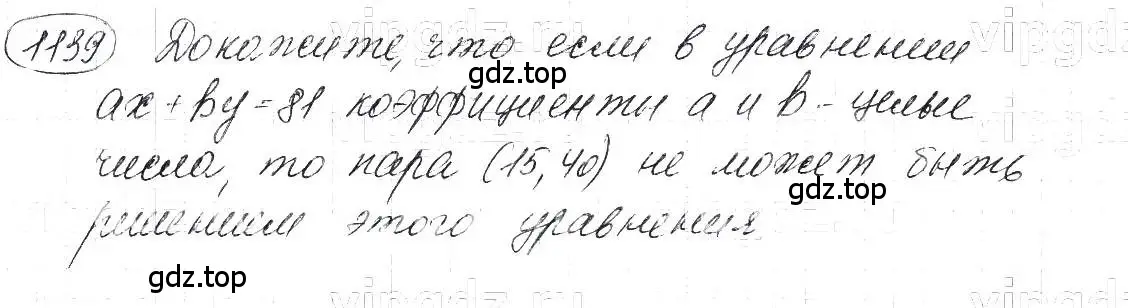 1139 Докажите, что если в уравнении
gdz.top
ax + by = 81 коэффициенты a и b - целые
числа, то пара (15, 40) не может быть
gdz.top
решением этого уравнения
gdz.top
vipgdz.ru